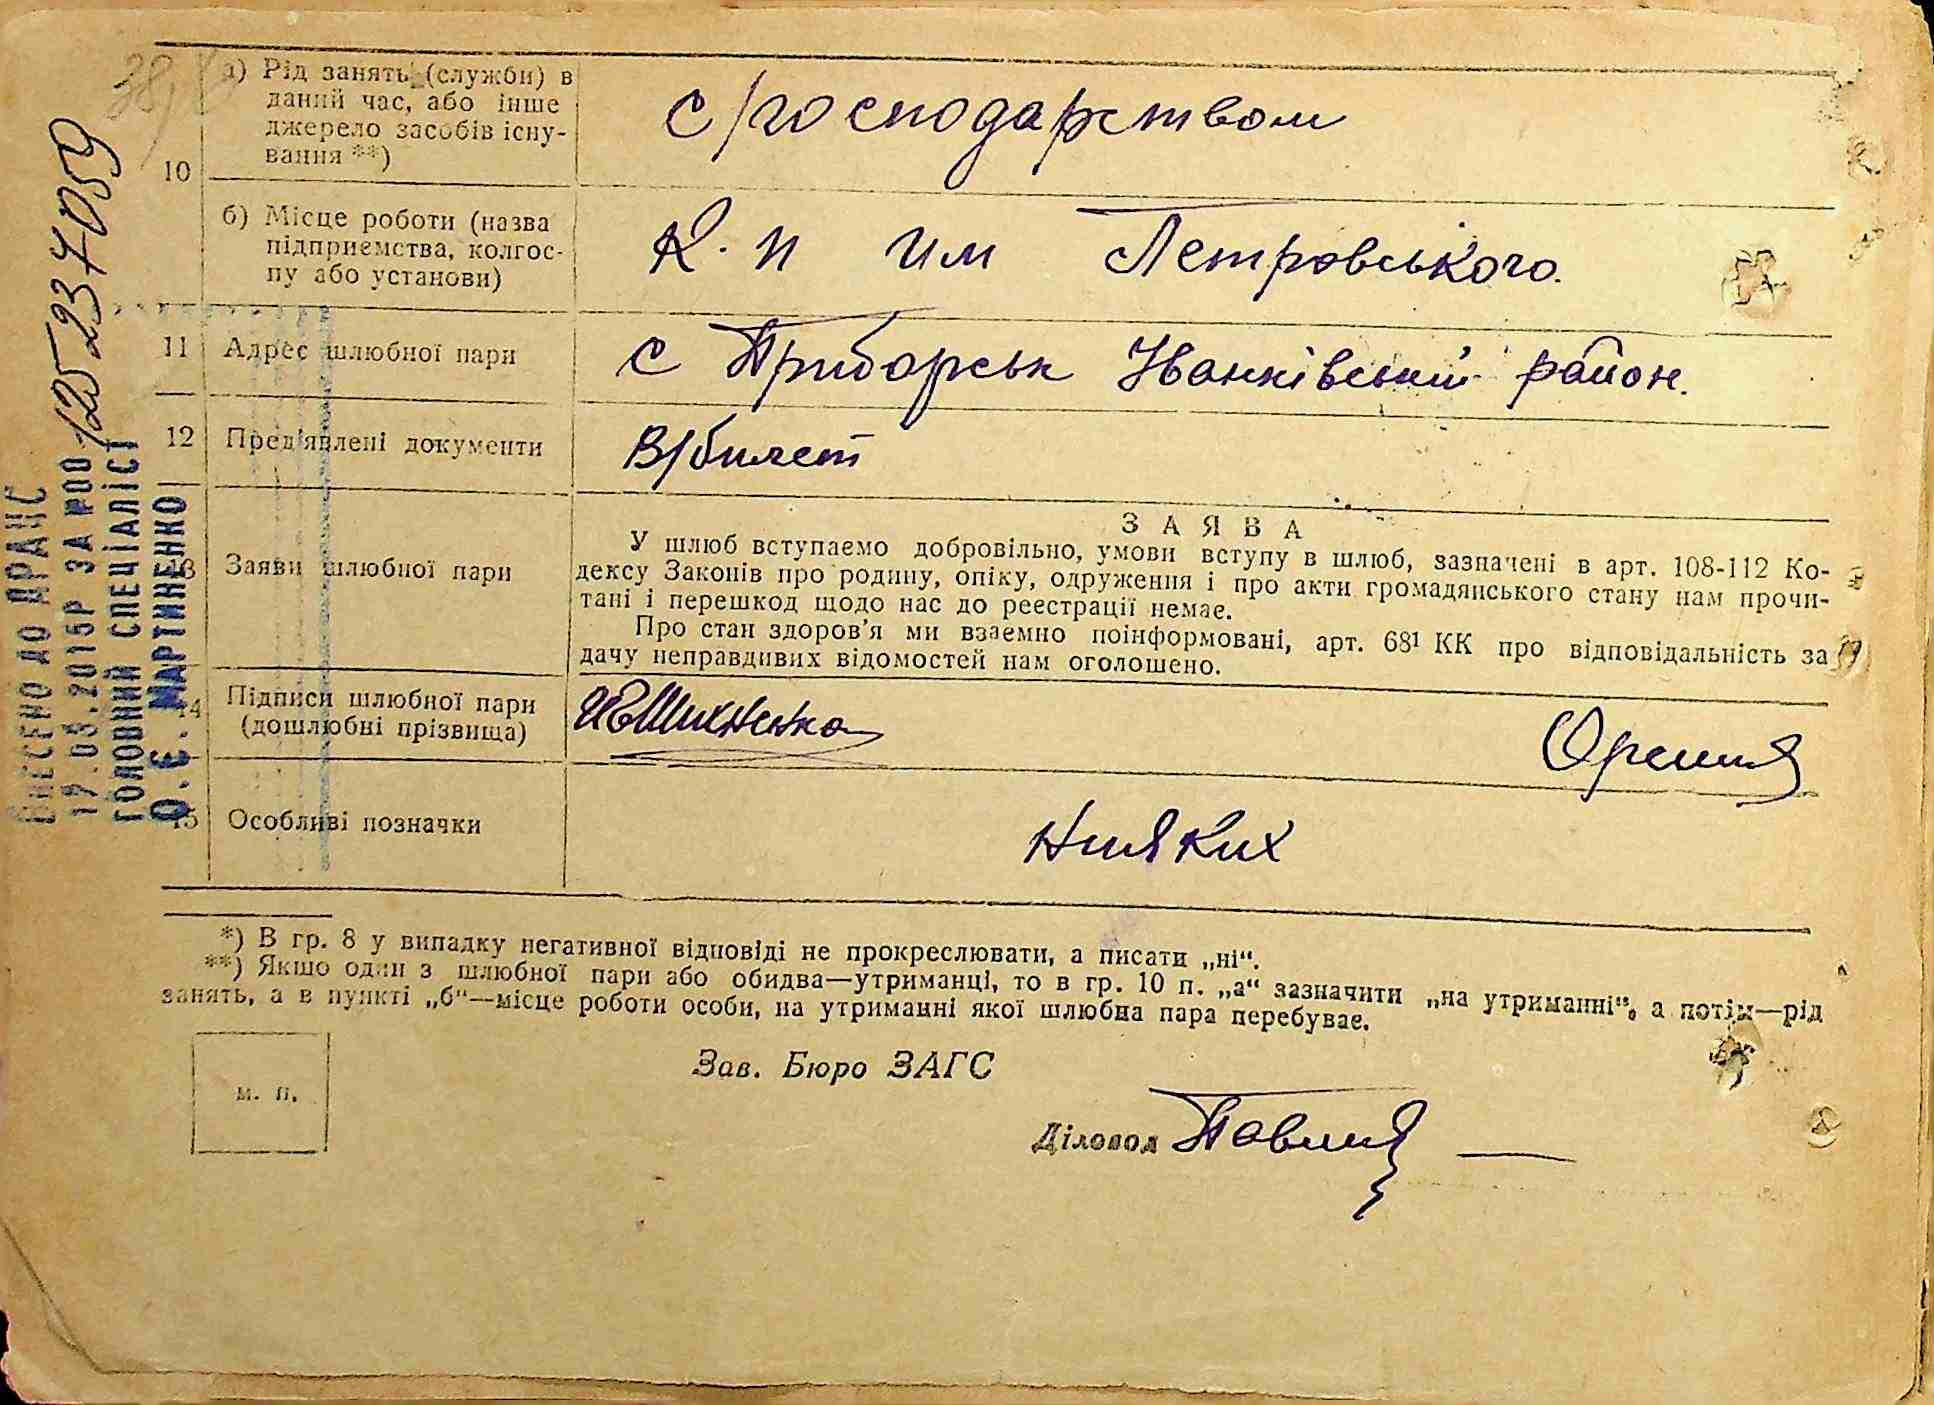 10
а) Рід занять (служби) в
даний час, або інше
джерело засобів існу-
вання **)
с/господарством
б) Місце роботи (назва
підприємства, колгос-
пу або установи)
К. п им Петровського.
11 Адрес шлюбної пари
с Приборськ Іванківський район.
12 Пред'явлені документи
В/билет
13 Заяви шлюбної пари
ЗАЯВА
У шлюб вступаємо добровільно, умови вступу в шлюб, зазначені в арт. 108-112 Ко-
дексу Законів про родину, опіку, одруження і про акти громадянського стану нам прочи-
тані і перешкод щодо нас до реєстрації немає.
Про стан здоров'я ми взаємно поінформовані, арт. 68¹ КК про відповідальність за
дачу неправдивих відомостей нам оголошено.
14 Підписи шлюбної пари
(дошлюбні прізвища)
15 Особливі позначки
нияких
*) В гр. 8 у випадку негативної відповіді не прокреслювати, а писати „ні“.
**) Якшо один з шлюбної пари або обидва—утриманці, то в гр. 10 п. „а“ зазначити „на утриманні“, а потім—рід
занять, а в пункті „б“—місце роботи особи, на утриманні якої шлюбна пара перебуває.
м. п.
Зав. Бюро ЗАГС
Діловод
ВНЕСЕНО ДО ДРАЦС
19.08.2015Р ЗА №00125237059
ГОЛОВНИЙ СПЕЦІАЛІСТ
О.Є. МАРТИНЕНКО